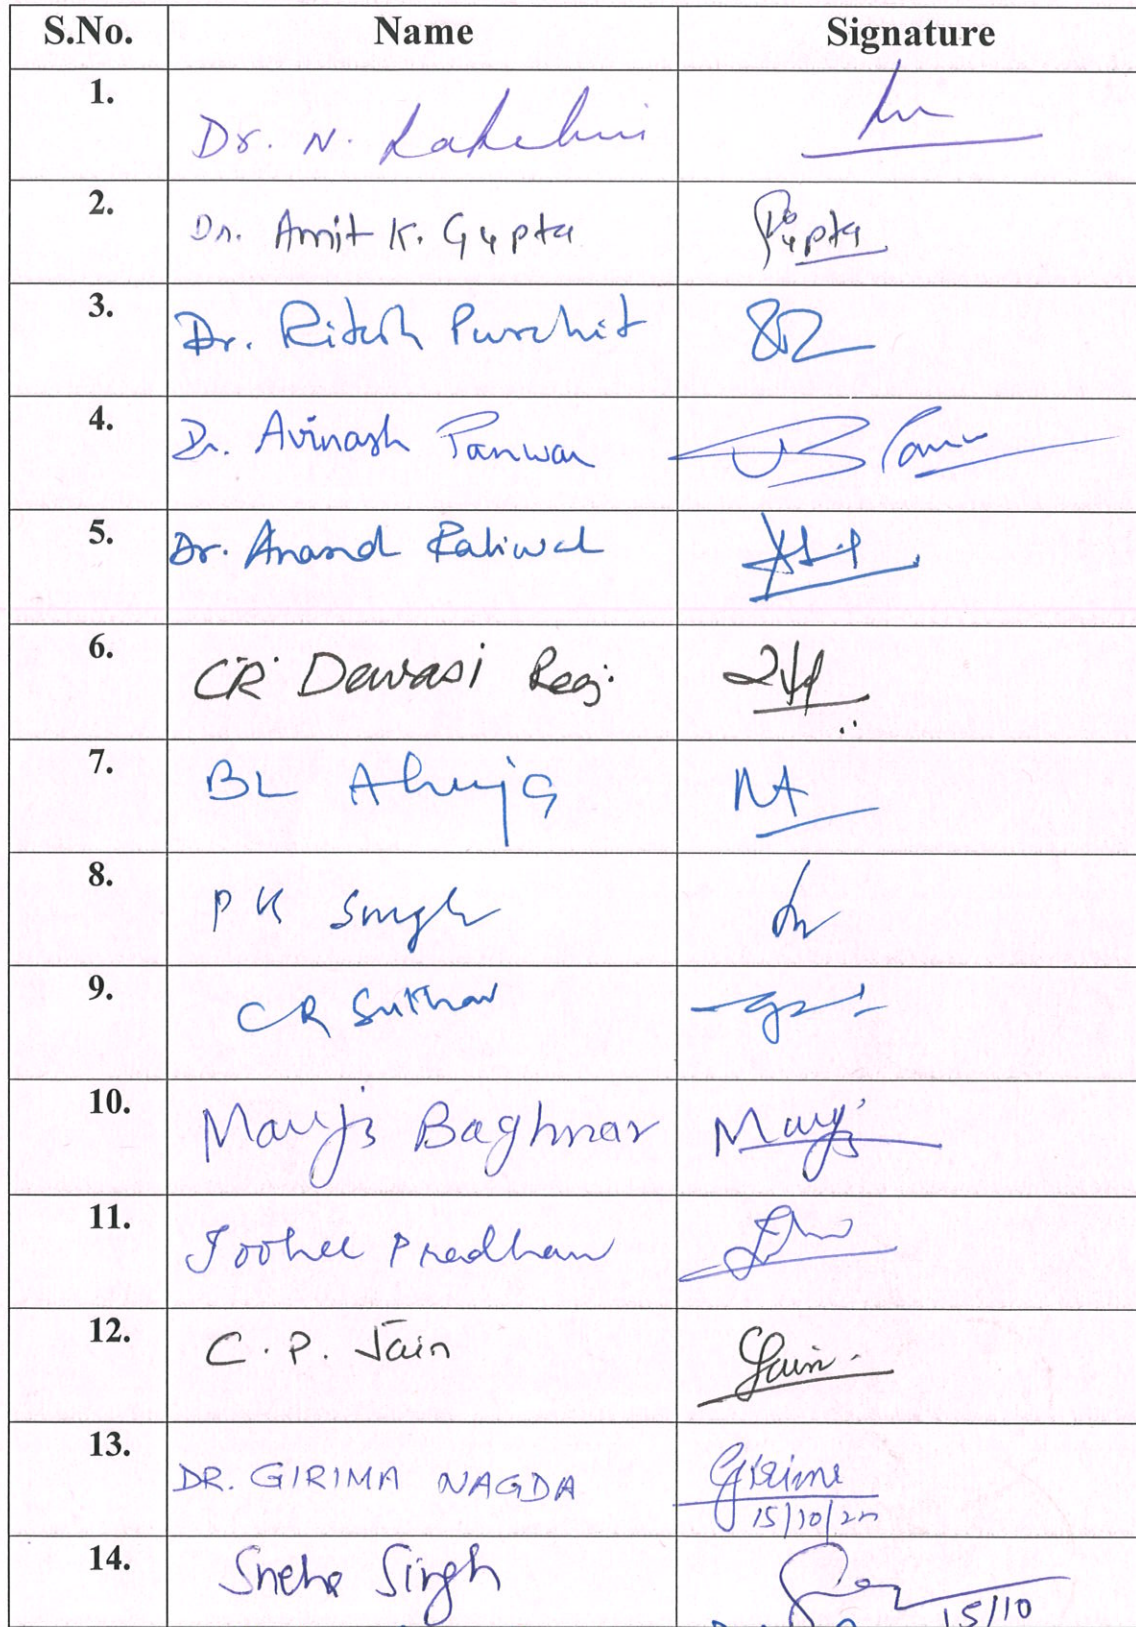 S.No. Name Signature
1. Dr. N. Lakshmi
2. Dr. Amit K. Gupta Gupta
3. Dr. Ritesh Purohit
4. Dr. Avinash Panwar
5. Dr. Anand Paliwal
6. CR Dewasi Reg.
7. BL Ahuja
8. PK Singh
9. CR Suthar
10. Baghmar
11. Joohee Pradhan
12. C. P. Jain Jain
13. DR. GIRIMA NAGDA Girima
15/10/
14. Sneha Singh
15/10